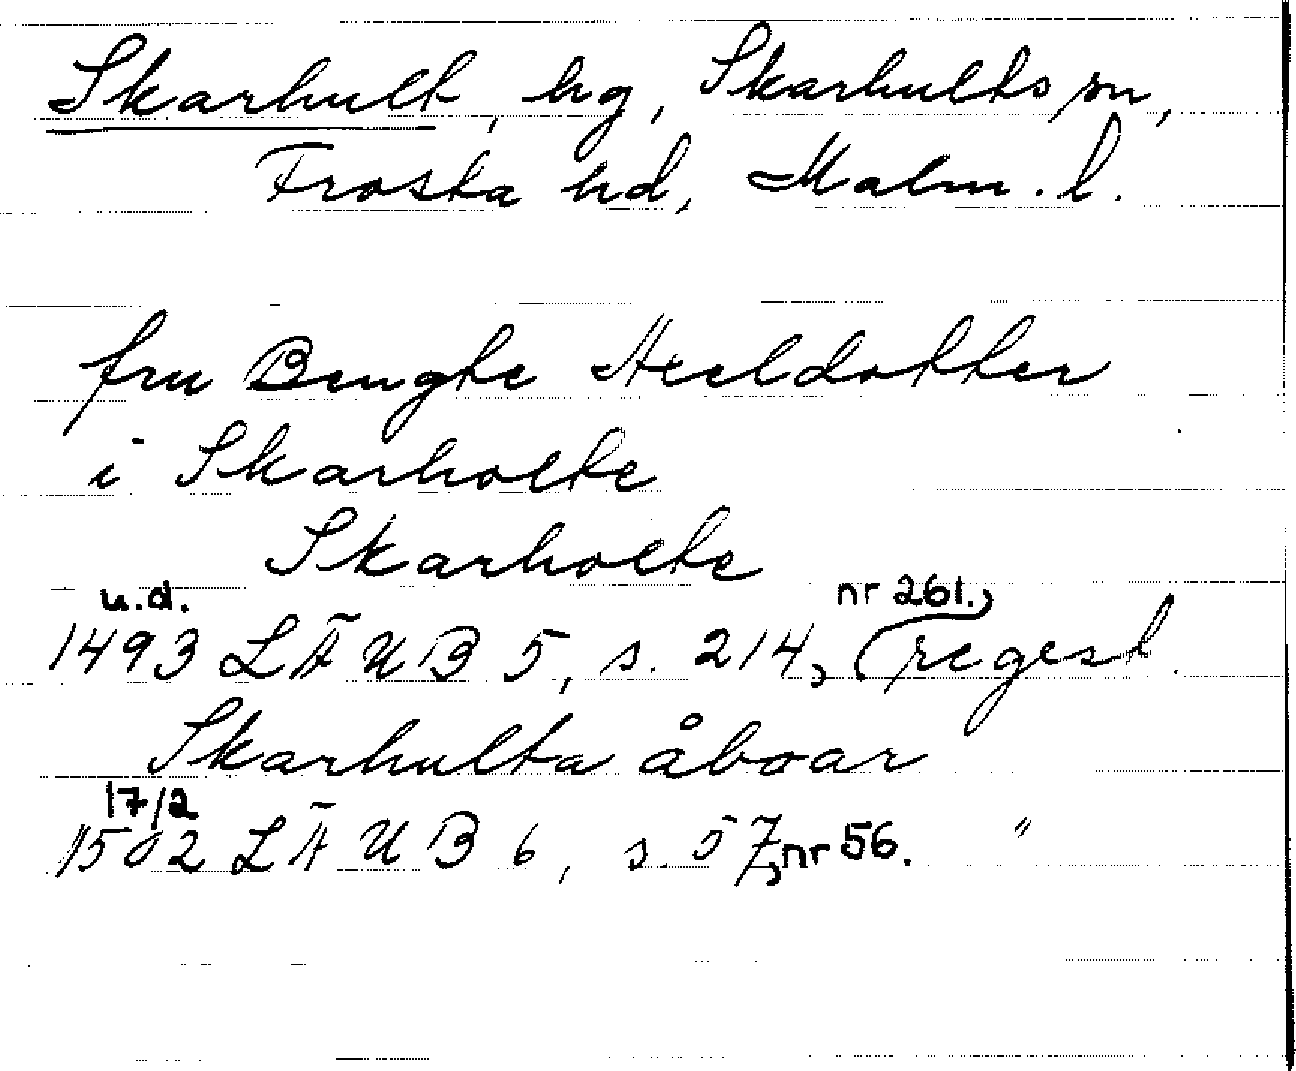 Skarhult, hg, Skarhults sn,
Frosta hd, Malm. l.
fru Bengte Aeeldotter
i Skarholte
Skarholte
u.d. nr 261.,
1493 LÄUB 5, s. 214, regest.
Skarhulta åboar
17/2
1502 LÄUB 6, s. 57, nr 56. "